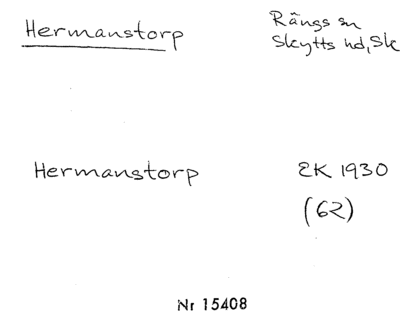 Hermanstorp
Rängs sn
Skytts hd, Sk
Hermanstorp
EK 1930
(62)
Nr 15408